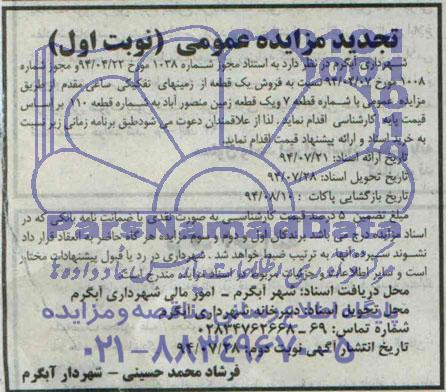 تجدید مزایده عمومی (نوبت اول)
شهرداری آبگرم در نظر دارد به استناد مجوز شماره ۱۰۳۸ مورخ ۹۴/۰۴/۲۲ و مجوز شماره
۱۰۰۸ مورخ ۹۴/۰۴/۰۷ نسبت به فروش یک قطعه از زمینهای تفکیکی ساعی مقدم از طریق
مزایده عمومی با شماره قطعه ۷ و یک قطعه زمین منصور آباد به شماره قطعه ۱۱۰ بر اساس
قیمت پایه کارشناسی اقدام نماید. لذا از علاقمندان دعوت می شود طبق برنامه زمانی زیر نسبت
به خرید اسناد و ارائه پیشنهاد قیمت اقدام نماید.
تاریخ ارائه اسناد: ۹۴/۰۷/۲۱
تاریخ تحویل اسناد: ۹۴/۰۷/۲۸
تاریخ بازگشایی پاکات : ۹۴/۰۸/۱۰
مبلغ تضمین ۵ درصد قیمت کارشناسی به صورت نقدی یا ضمانت نامه بانکی که در
اسناد مزایده درج می باشد. برندگان اول و دوم و سوم مزایده هر گاه حاضر به انعقاد قرار داد
نشوند سپرده آنها به ترتیب ضبط خواهد شد. شهرداری در رد یا قبول پیشنهادات مختار
است و سایر اطلاعات و جزئیات مربوطه در اسناد مزایده مندرج است.
محل دریافت اسناد: شهر آبگرم - امور مالی شهرداری آبگرم
محل تحویل اسناد: دبیرخانه شهرداری آبگرم
شماره تماس: ۶۹ - ۰۲۸۳۴۷۶۲۶۶۸
تاریخ انتشار آگهی نوبت دوم: ۹۴/۰۷/۲۸
فرشاد محمد حسینی - شهردار آبگرم
ParsNamadData
پایگاه اطلاع رسانی مناقصه و مزایده
۰۲۱-۸۸۳۴۹۶۷۰-۵